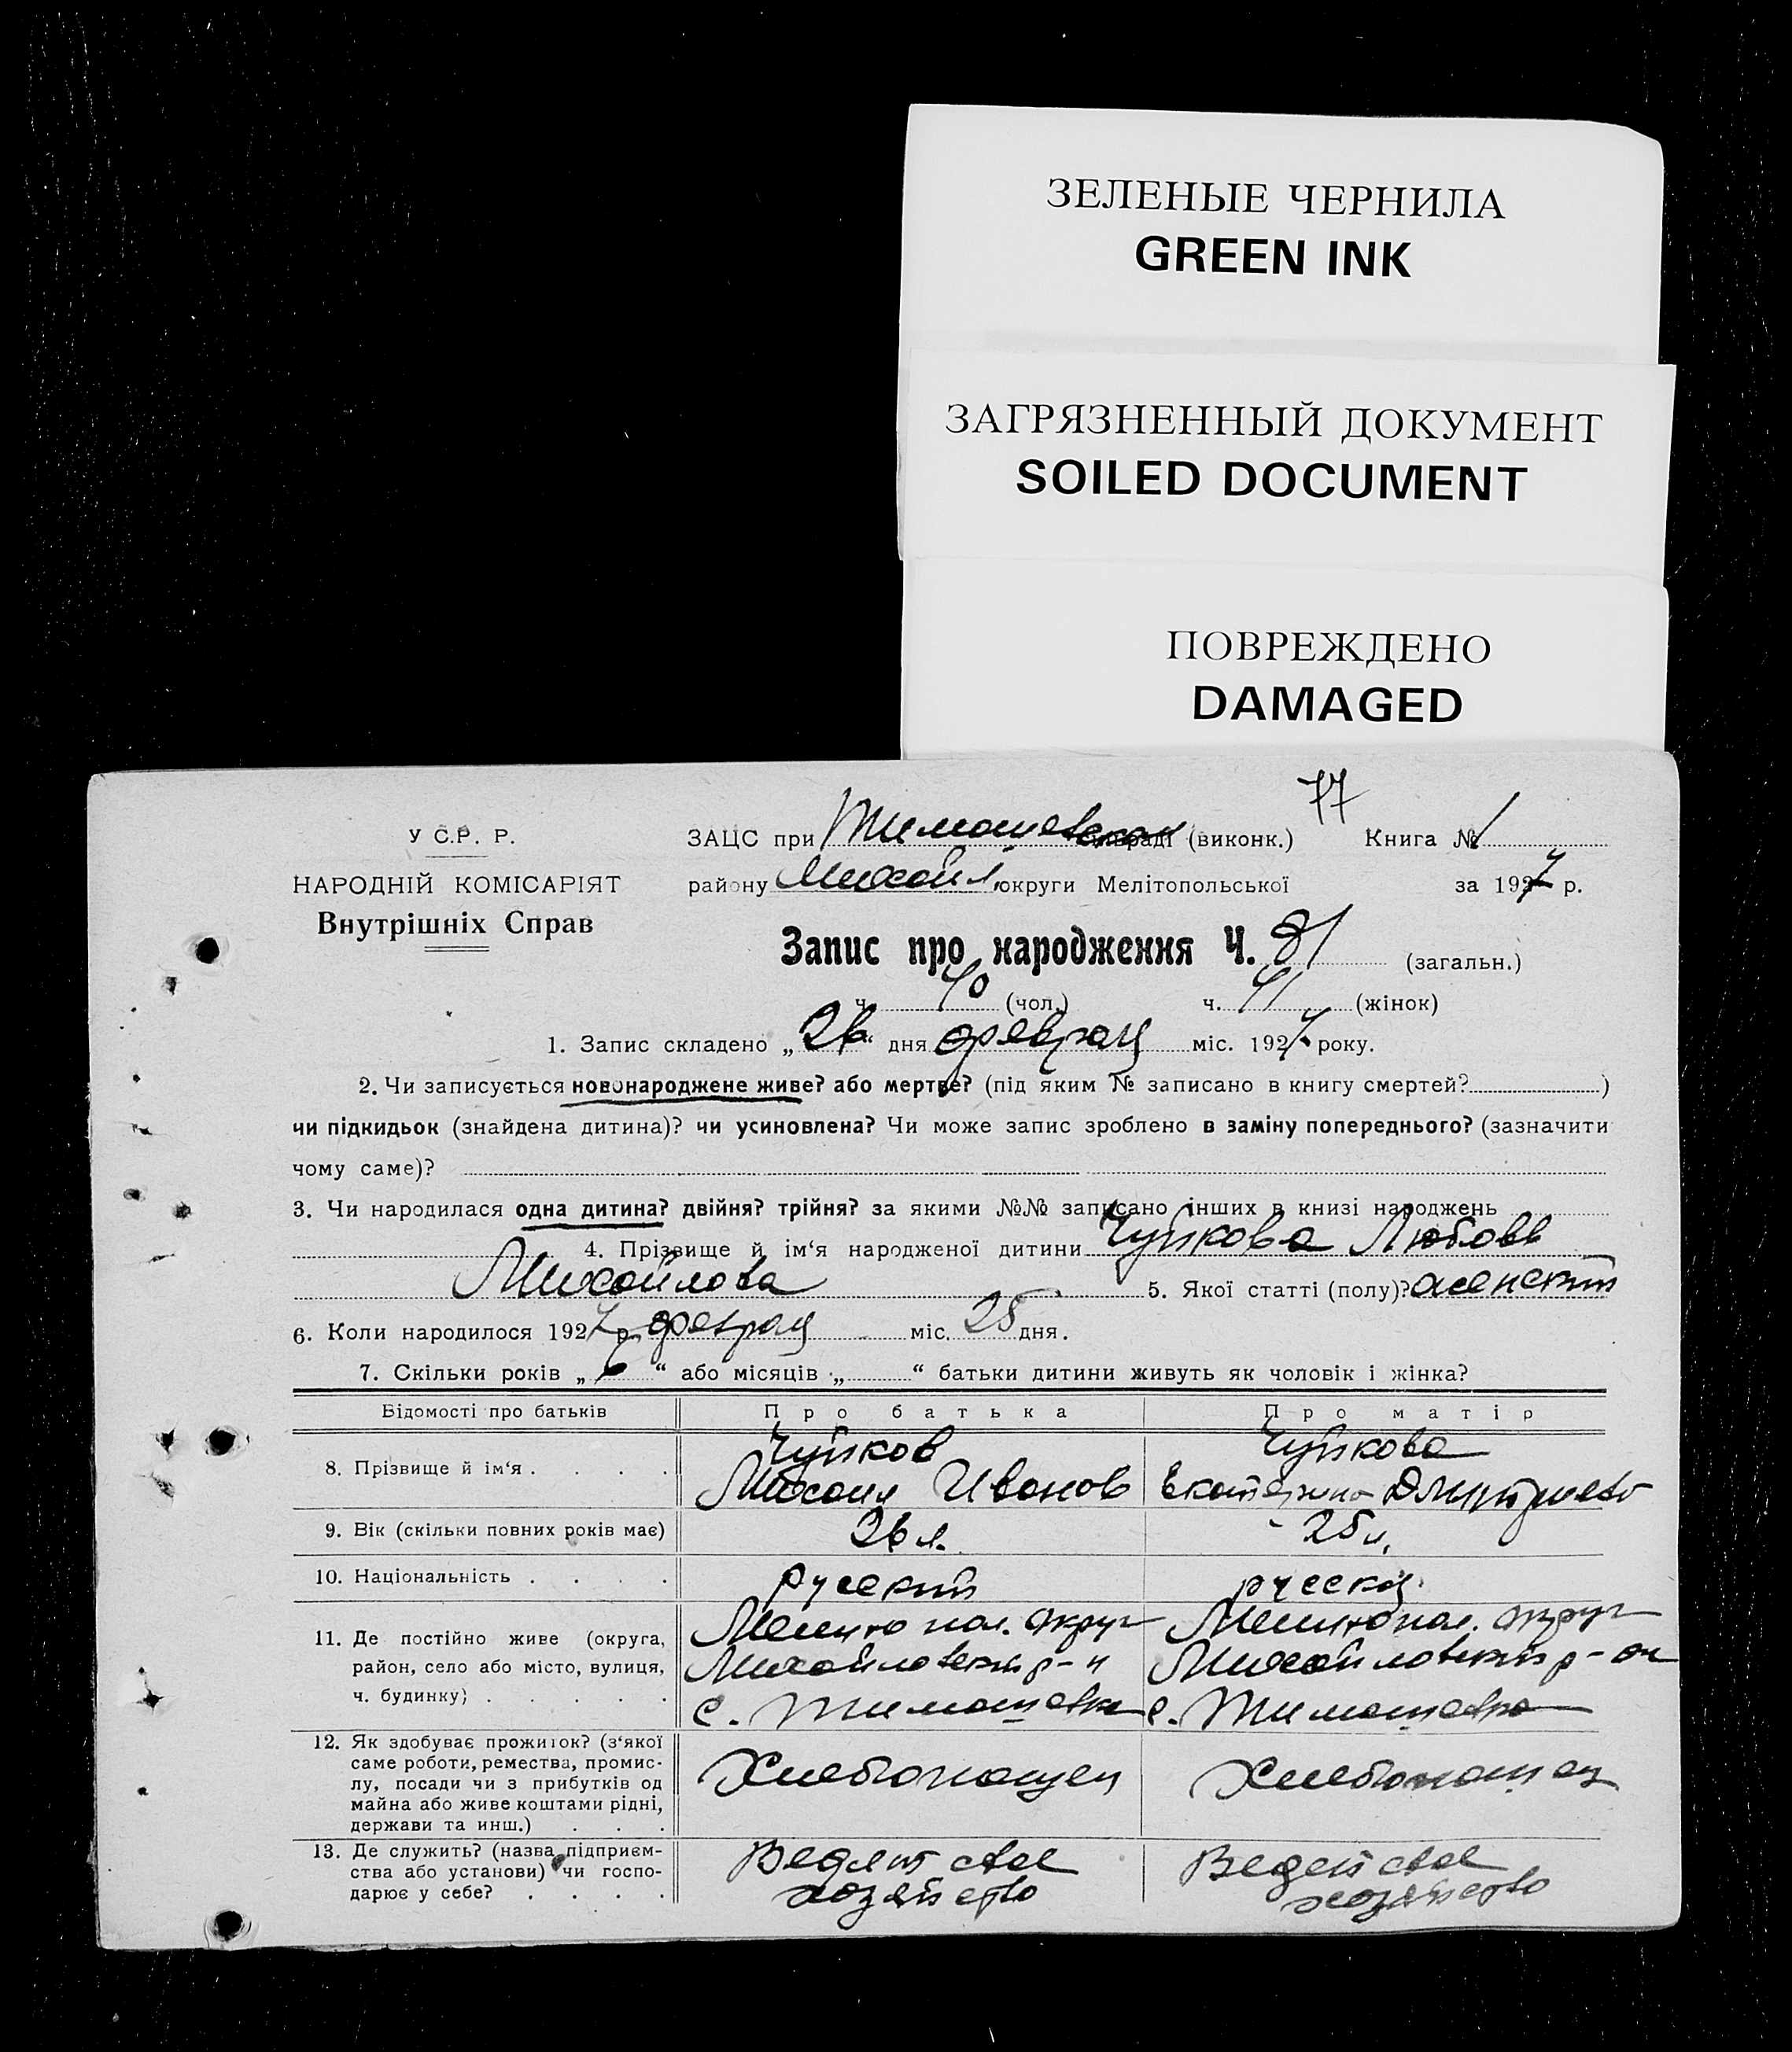 ЗЕЛЕНЫЕ ЧЕРНИЛА
GREEN INK
ЗАГРЯЗНЕННЫЙ ДОКУМЕНТ
SOILED DOCUMENT
ПОВРЕЖДЕНО
DAMAGED
77
У С.Р. Р.
ЗАЦС при Тимошевской раді (виконк.) Книга № 1
НАРОДНІЙ КОМІСАРІЯТ
району Михайл. округи Мелітопольської за 1927 р.
Внутрішніх Справ
Запис про народження Ч. 81 (загальн.)
ч. 40 (чол.) ч. 41 (жінок)
1. Запис складено „26“ дня февраля міс. 1927 року.
2. Чи записується новонароджене живе? або мертве? (під яким № записано в книгу смертей? )
чи підкидьок (знайдена дитина)? чи усиновлена? Чи може запис зроблено в заміну попереднього? (зазначити
чому саме)?
3. Чи народилася одна дитина? двійня? трійня? за якими №№ записано інших в книзі народжень
4. Прізвище й ім‘я народженої дитини Чуйкова Любовь
Михайлова 5. Якої статті (полу)? женский
6. Коли народилося 1927 р. февраля міс. 25 дня.
7. Скільки років „ “ або місяців „ “ батьки дитини живуть як чоловік і жінка?
Відомості про батьків Про батька Про матір
8. Прізвище й ім‘я Чуйков Михаил Иванов Чуйкова Екатерина Дмитриева
9. Вік (скільки повних років має) 26 л. 25 л.
10. Національність русский русская
11. Де постійно живе (округа, Мелитопол. округ Мелитопол. округ
район, село або місто, вулиця, Михайловский р-н Михайловский р-он
ч. будинку) с. Тимошевка с. Тимошевка
12. Як здобуває прожиток? (з‘якої
саме роботи, ремества, промис-
лу, посади чи з прибутків од Хлебопашец Хлебопашец
майна або живе коштами рідні,
держави та инш.)
13. Де служить? (назва підприєм- Ведет свое Ведет свое
ства або установи) чи госпо- хозяйство хозяйство
дарює у себе?